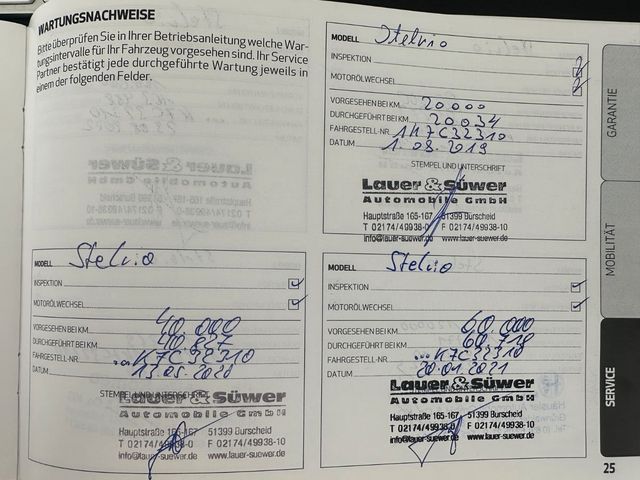 WARTUNGSNACHWEISE
Bitte überprüfen Sie in Ihrer Betriebsanleitung welche War-
tungsintervalle für Ihr Fahrzeug vorgesehen sind. Ihr Service
Partner bestätigt jede durchgeführte Wartung jeweils in
einem der folgenden Felder.
MODELL Stelvio
INSPEKTION
MOTORÖLWECHSEL
VORGESEHEN BEI KM 20000
DURCHGEFÜHRT BEI KM 20034
FAHRGESTELL-NR. K7C32310
DATUM 1.08.2019
STEMPEL UND UNTERSCHRIFT
Lauer & Süwer
Automobile GmbH
Hauptstraße 165-167 51399 Burscheid
T 02174/49938-0 F 02174/49938-10
info@lauer-suewer.de www.lauer-suewer.de
MODELL Stelvio
INSPEKTION
MOTORÖLWECHSEL
VORGESEHEN BEI KM 40.000
DURCHGEFÜHRT BEI KM 40.827
FAHRGESTELL-NR. ...K7C32310
DATUM 13.05.2020
STEMPEL UND UNTERSCHRIFT
Lauer & Süwer
Automobile GmbH
Hauptstraße 165-167 51399 Burscheid
T 02174/49938-0 F 02174/49938-10
info@lauer-suewer.de www.lauer-suewer.de
MODELL Stelvio
INSPEKTION
MOTORÖLWECHSEL
VORGESEHEN BEI KM 60.000
DURCHGEFÜHRT BEI KM 60.719
FAHRGESTELL-NR. ...K7C32310
DATUM 20.01.2021
Lauer & Süwer
Automobile GmbH
Hauptstraße 165-167 51399 Burscheid
T 02174/49938-0 F 02174/49938-10
info@lauer-suewer.de www.lauer-suewer.de
GARANTIE
MOBILITÄT
SERVICE
25